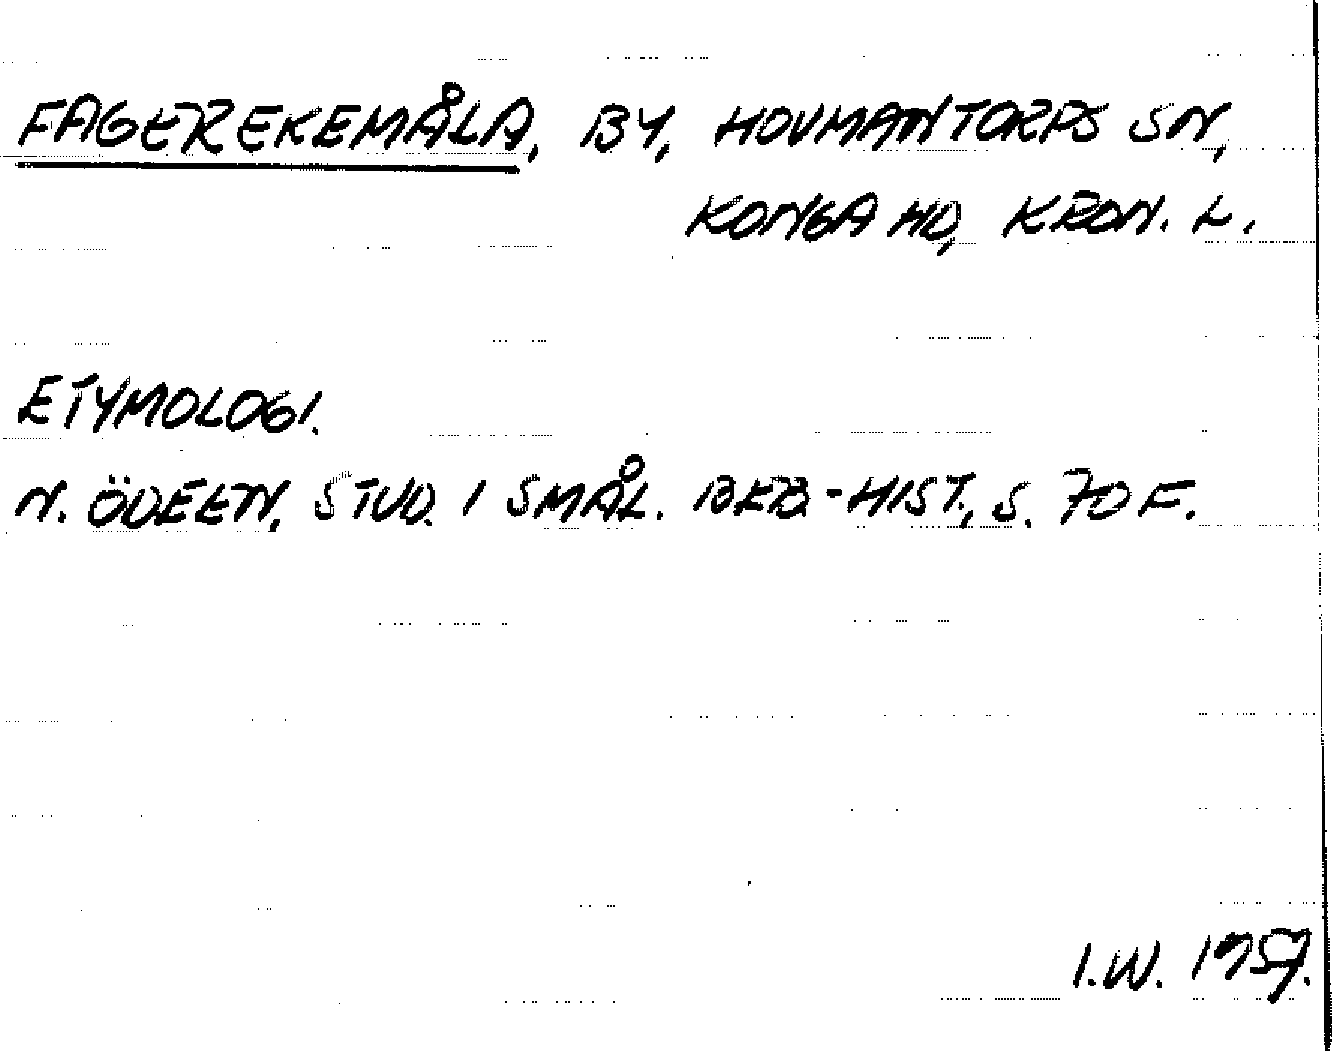 FAGEREKEMÅLA, BY, HOVMANTORPS SN,
KONGA HD, KRON. L.
ETYMOLOGI.
N. ÖDEEN, STUD. I SMÅL. BEB.-HIST., S. 70 F.
I.W. 1957.